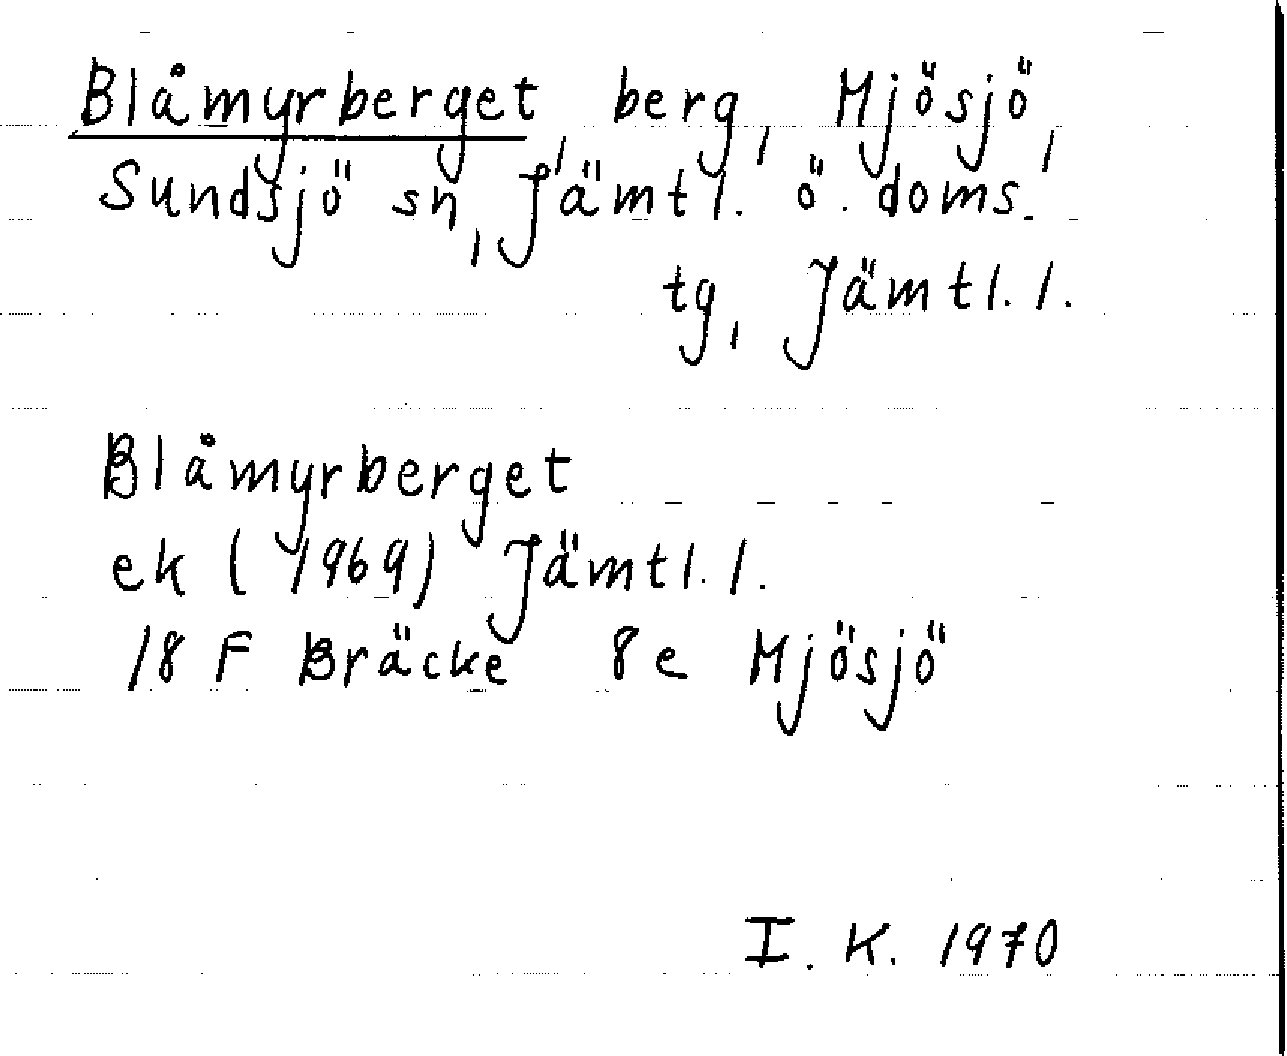 Blåmyrberget, berg, Mjösjö,
Sundsjö sn, Jämtl. ö. doms.
tg, Jämtl. l.
Blåmyrberget
ek (1969) Jämtl. l.
18 F Bräcke 8e Mjösjö
I. K. 1970